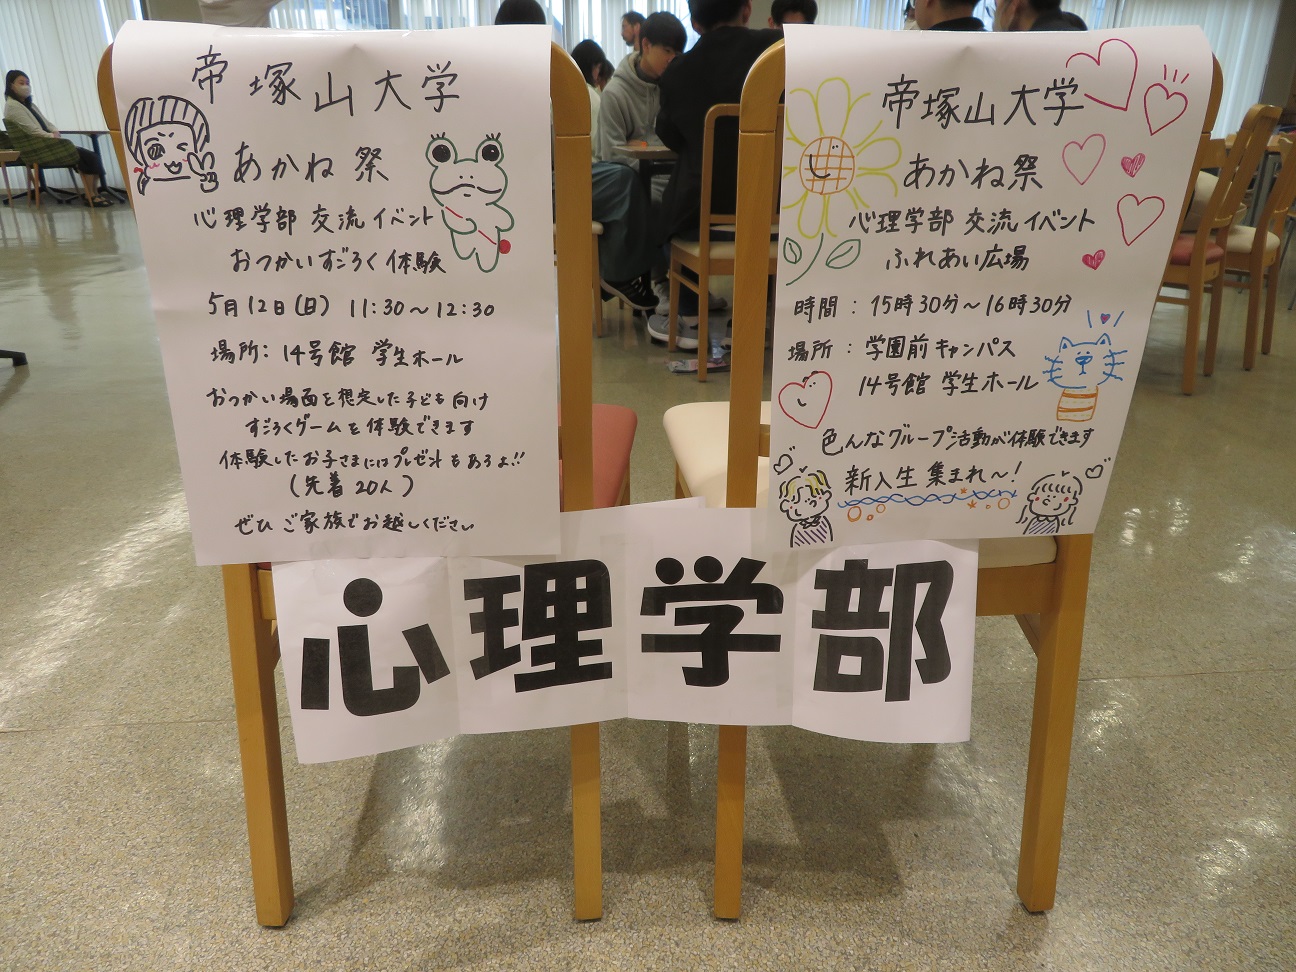 帝塚山大学
あかね祭
心理学部 交流イベント
おつかいすごろく体験
5月12日(日) 11:30～12:30
場所: 14号館 学生ホール
おつかい場面を想定した子ども向け
すごろくゲームを体験できます
体験したお子さまにはプレゼントもあるよ!!
(先着20人)
ぜひご家族でお越しください
帝塚山大学
あかね祭
心理学部 交流イベント
ふれあい広場
時間：15時30分～16時30分
場所：学園前キャンパス
14号館 学生ホール
色んなグループ活動が体験できます
新入生集まれ～!
心理学部